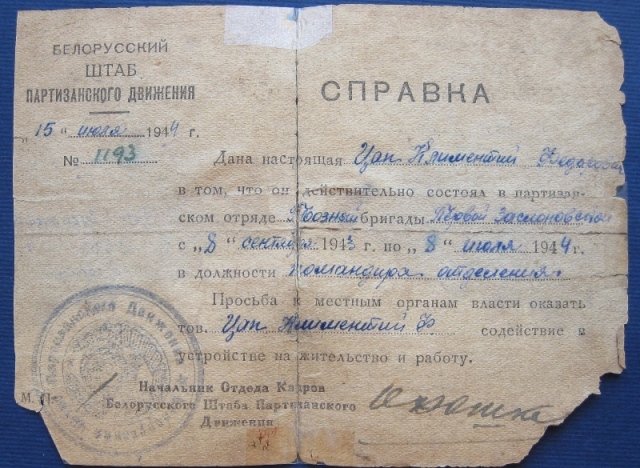 БЕЛОРУССКИЙ
ШТАБ
ПАРТИЗАНСКОГО ДВИЖЕНИЯ
„15“ июля 1944 г.
№ 1193
СПРАВКА
Дана настоящая Цап Климентий
в том, что он действительно состоял в партизан-
ском отряде Грозный бригады Первой Заслоновской
с „8“ сентября 1943 г. по „8“ июля 1944 г.
в должности командира отделения.
Просьба к местным органам власти оказать
тов. Цап Климентий Ф содействие в
устройстве на жительство и работу.
М. П.
Начальник Отдела Кадров
Белорусского Штаба Партизанского
Движения